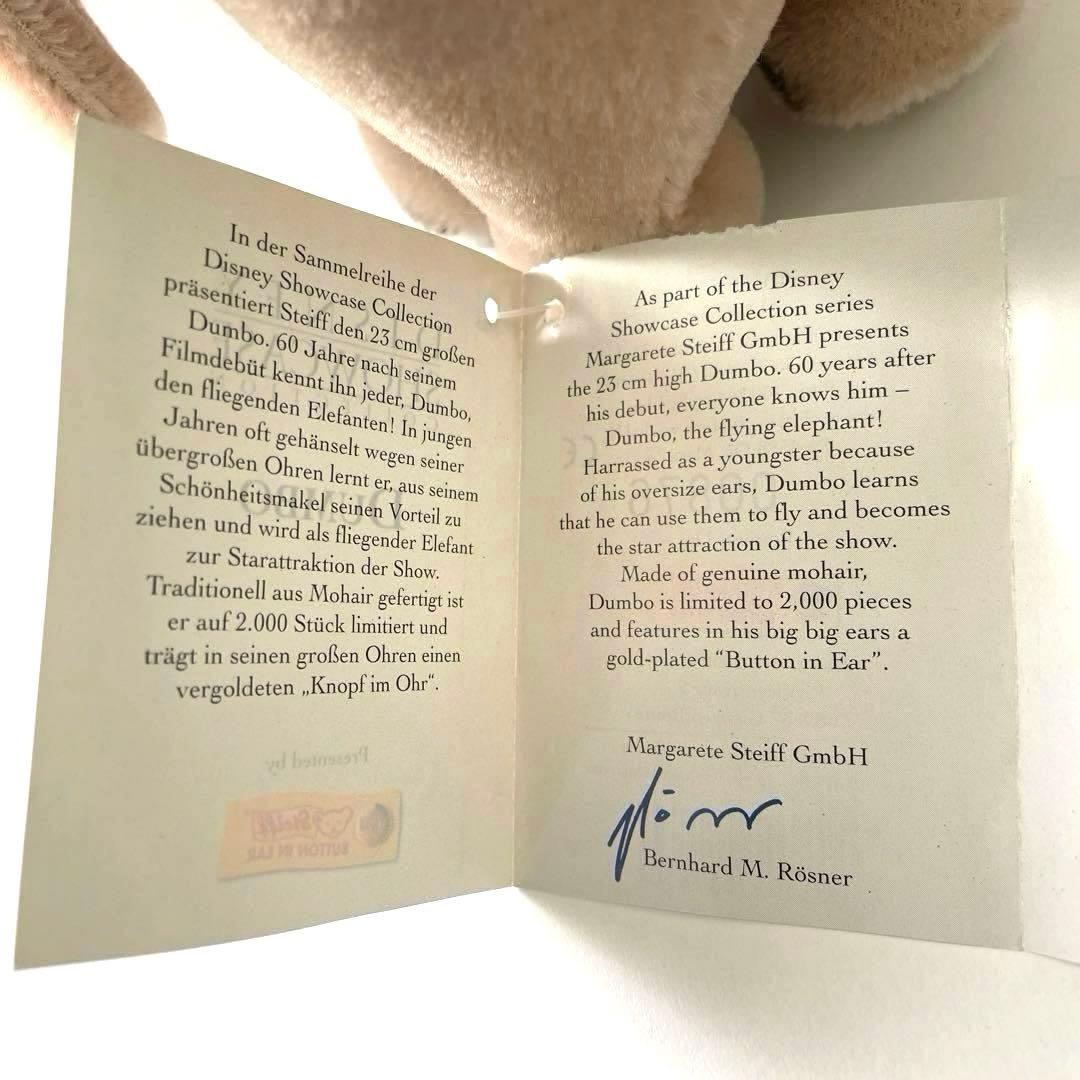 In der Sammelreihe der
Disney Showcase Collection
präsentiert Steiff den 23 cm großen
Dumbo. 60 Jahre nach seinem
Filmdebüt kennt ihn jeder, Dumbo,
den fliegenden Elefanten! In jungen
Jahren oft gehänselt wegen seiner
übergroßen Ohren lernt er, aus seinem
Schönheitsmakel seinen Vorteil zu
ziehen und wird als fliegender Elefant
zur Starattraktion der Show.
Traditionell aus Mohair gefertigt ist
er auf 2.000 Stück limitiert und
trägt in seinen großen Ohren einen
vergoldeten „Knopf im Ohr“.
Presented by
Steiff
BUTTON IN EAR
As part of the Disney
Showcase Collection series
Margarete Steiff GmbH presents
the 23 cm high Dumbo. 60 years after
his debut, everyone knows him –
Dumbo, the flying elephant!
Harrassed as a youngster because
of his oversize ears, Dumbo learns
that he can use them to fly and becomes
the star attraction of the show.
Made of genuine mohair,
Dumbo is limited to 2,000 pieces
and features in his big big ears a
gold-plated “Button in Ear”.
Margarete Steiff GmbH
Bernhard M. Rösner